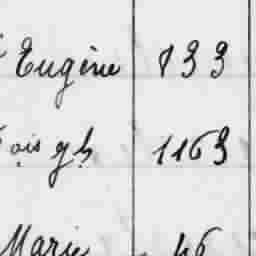 Eugène 833
ois gh 1163
Marie 46